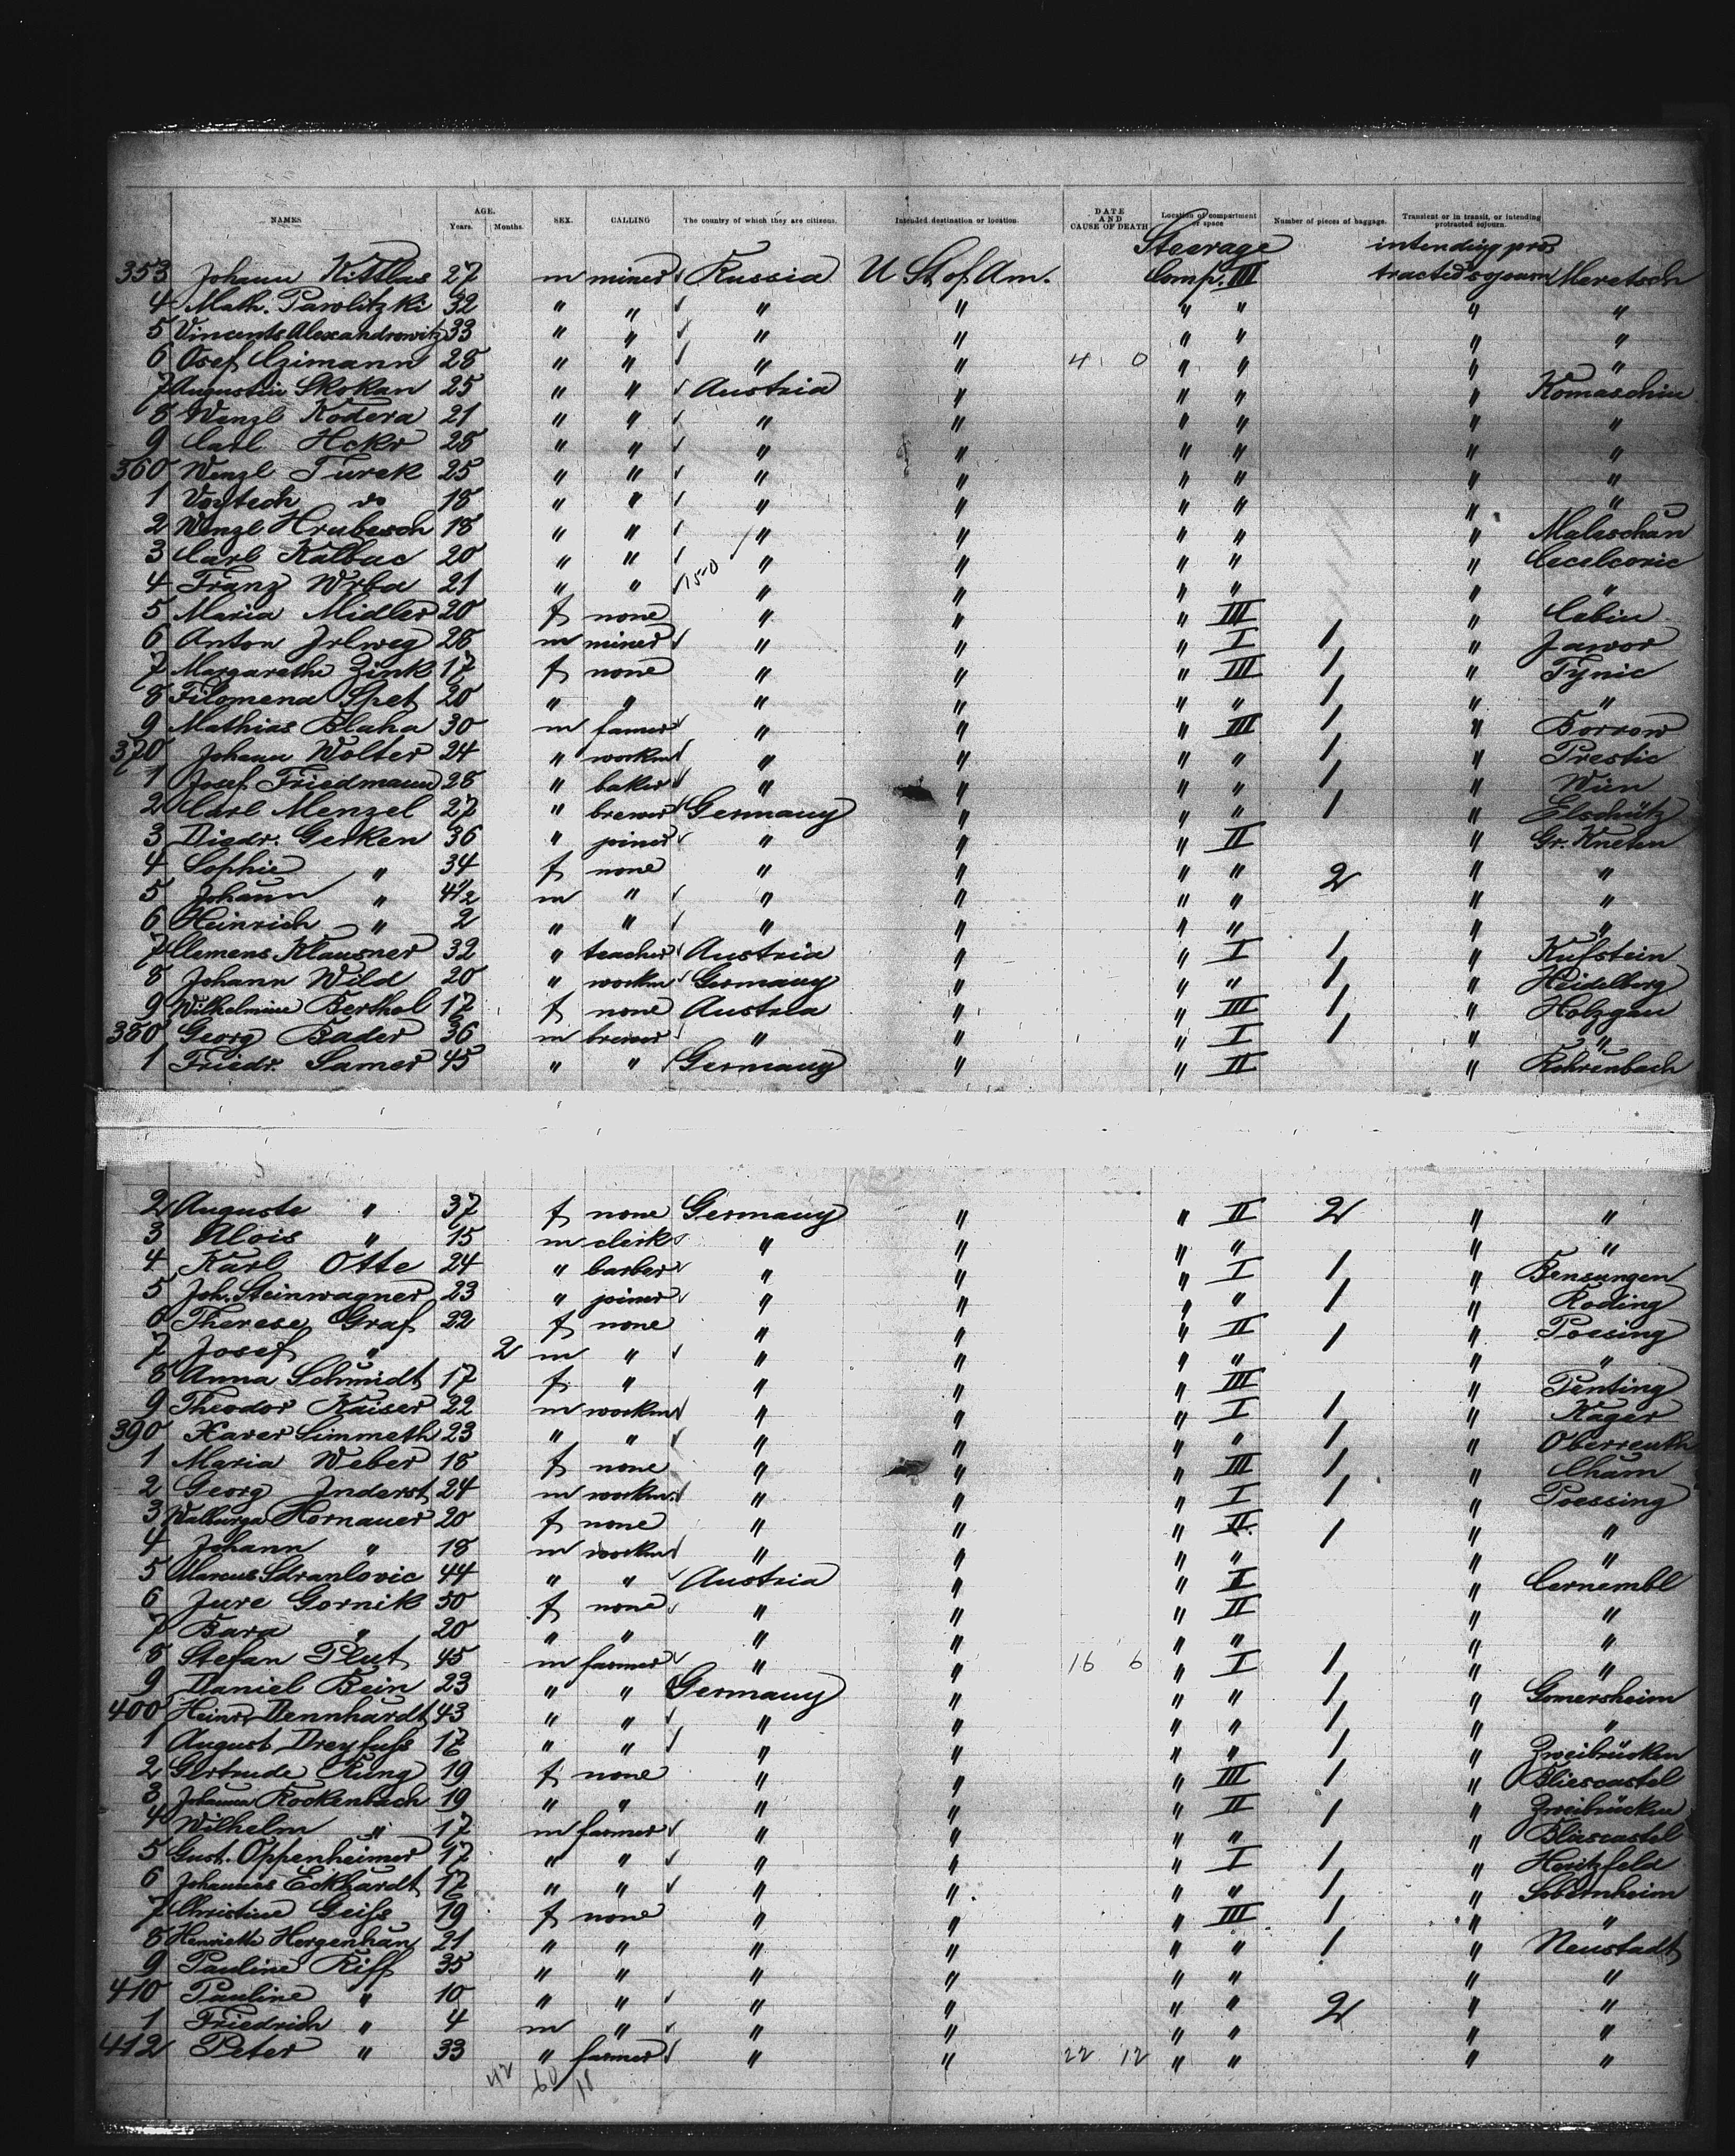 NAMES AGE. Years. Months. SEX. CALLING The country of which they are citizens. Intended destination or location. DATE AND CAUSE OF DEATH Location of compartment or space Number of pieces of baggage. Transient or in transit, or intending protracted sojourn.
Steerage intending pro=
353 Johann Kittlas 27 m miner Russia U St. of Am. Comp. III tracted sojourn Meretsch
4 Math. Pawlitzki 32 " " " " " " " "
5 Vincents Alexandrowitz 33 " " " " " " " "
6 Osef Czimann 28 " " " " 4 0 " " " "
7 Augustin Skokan 25 " " Austria " " " " Komaschin
8 Wenzl Kodera 21 " " " " " " " "
9 Carl Hckr 28 " " " " " " " "
360 Wenzl Turek 25 " " " " " " " "
1 Voytech do 18 " " " " " " " "
2 Wenzl Hrubesch 18 " " " " " " " Maleschan
3 Carl Kalbac 20 " " " " " " " Cecelcovic
4 Franz Wrba 21 " " 150 " " " " " "
5 Maria Midler 20 f none " " " III " Cabin
6 Anton Jrlweg 28 m miner " " " I 1 " Jawor
7 Margarethe Zink 17 f none " " " III 1 " Tynic
8 Filomena Spet 20 " " " " " " 1 " "
9 Mathias Blaha 30 m famer " " " III 1 " Borrow
370 Johann Wolter 24 " workm " " " " 1 " Prestic
1 Josef Friedmann 28 " baker " " " " 1 " Wien
2 Carl Menzel 27 " brewer Germany " " " 1 " Elschütz
3 Diedr. Gerken 36 " joiner " " " II " Gr. Kneten
4 Sophie " 34 f none " " " " 2 " "
5 Johann " 4½ m " " " " " " "
6 Heinrich " 2 " " " " " " " "
7 Clemens Klausner 32 " teacher Austria " " I 1 " Kufstein
8 Johann Wild 20 " workm Germany " " " 1 " Heidelberg
9 Wilhelmine Berthol 17 f none Austria " " III 1 " Holzgau
380 Georg Bader 36 m brewer " " " I 1 " "
1 Friedr. Samer 45 " " Germany " " II " Rohrenbach
2 Auguste " 37 f none Germany " " II 2 " "
3 Alois " 15 m clerk " " " " " "
4 Karl Otte 24 " barber " " " I 1 " Bensungen
5 Joh. Steinwagner 23 " joiner " " " " 1 " Roding
6 Therese Graf 22 f none " " " II 1 " Poesing
7 Josef " 2 m " " " " " " "
8 Anna Schmidt 17 f " " " " III " Penting
9 Theodor Kaiser 22 m workm " " " I 1 " Kager
390 Xaver Simmeth 23 " " " " " " 1 " Oberreuth
1 Maria Weber 18 f none " " " III 1 " Cham
2 Georg Inderst 24 m workm " " " I 1 " Poessing
3 Walburga Hornauer 20 f none " " " II 1 " "
4 Johann " 18 m workm " " " " " "
5 Marcus Sdranlovic 44 " " Austria " " I " Cernembl
6 Jure Gornik 50 f none " " " II " "
7 Bara " 20 " " " " " " " "
8 Stefan Plut 45 m farmer " " 16 6 " I 1 " "
9 Daniel Bein 23 " " Germany " " " 1 " Gomersheim
400 Heinr. Dennhardt 43 " " " " " " 1 " "
1 August Dreyfuſs 17 " " " " " " 1 " Zweibrücken
2 Gertrude Rung 19 f none " " " III 1 " Bliescastel
3 Johanna Rockenbach 19 " " " " " II 1 " Zweibrücken
4 Wilhelm " 17 m farmer " " " " " Bliescastel
5 Gust. Oppenheimer 17 " " " " " I 1 " Heritzfeld
6 Johannes Eckhardt 17 " " " " " " 1 " Sobernheim
7 Christine Geiſs 19 f none " " " III 1 " "
8 Henriette Hergenhan 21 " " " " " " 1 " Neustadt
9 Pauline Riff 35 " " " " " " " "
410 Pauline " 10 " " " " " " 2 " "
1 Friedrich " 4 m " " " " " " "
412 Peter " 33 " farmer " " 22 12 " " " "
42 60 18